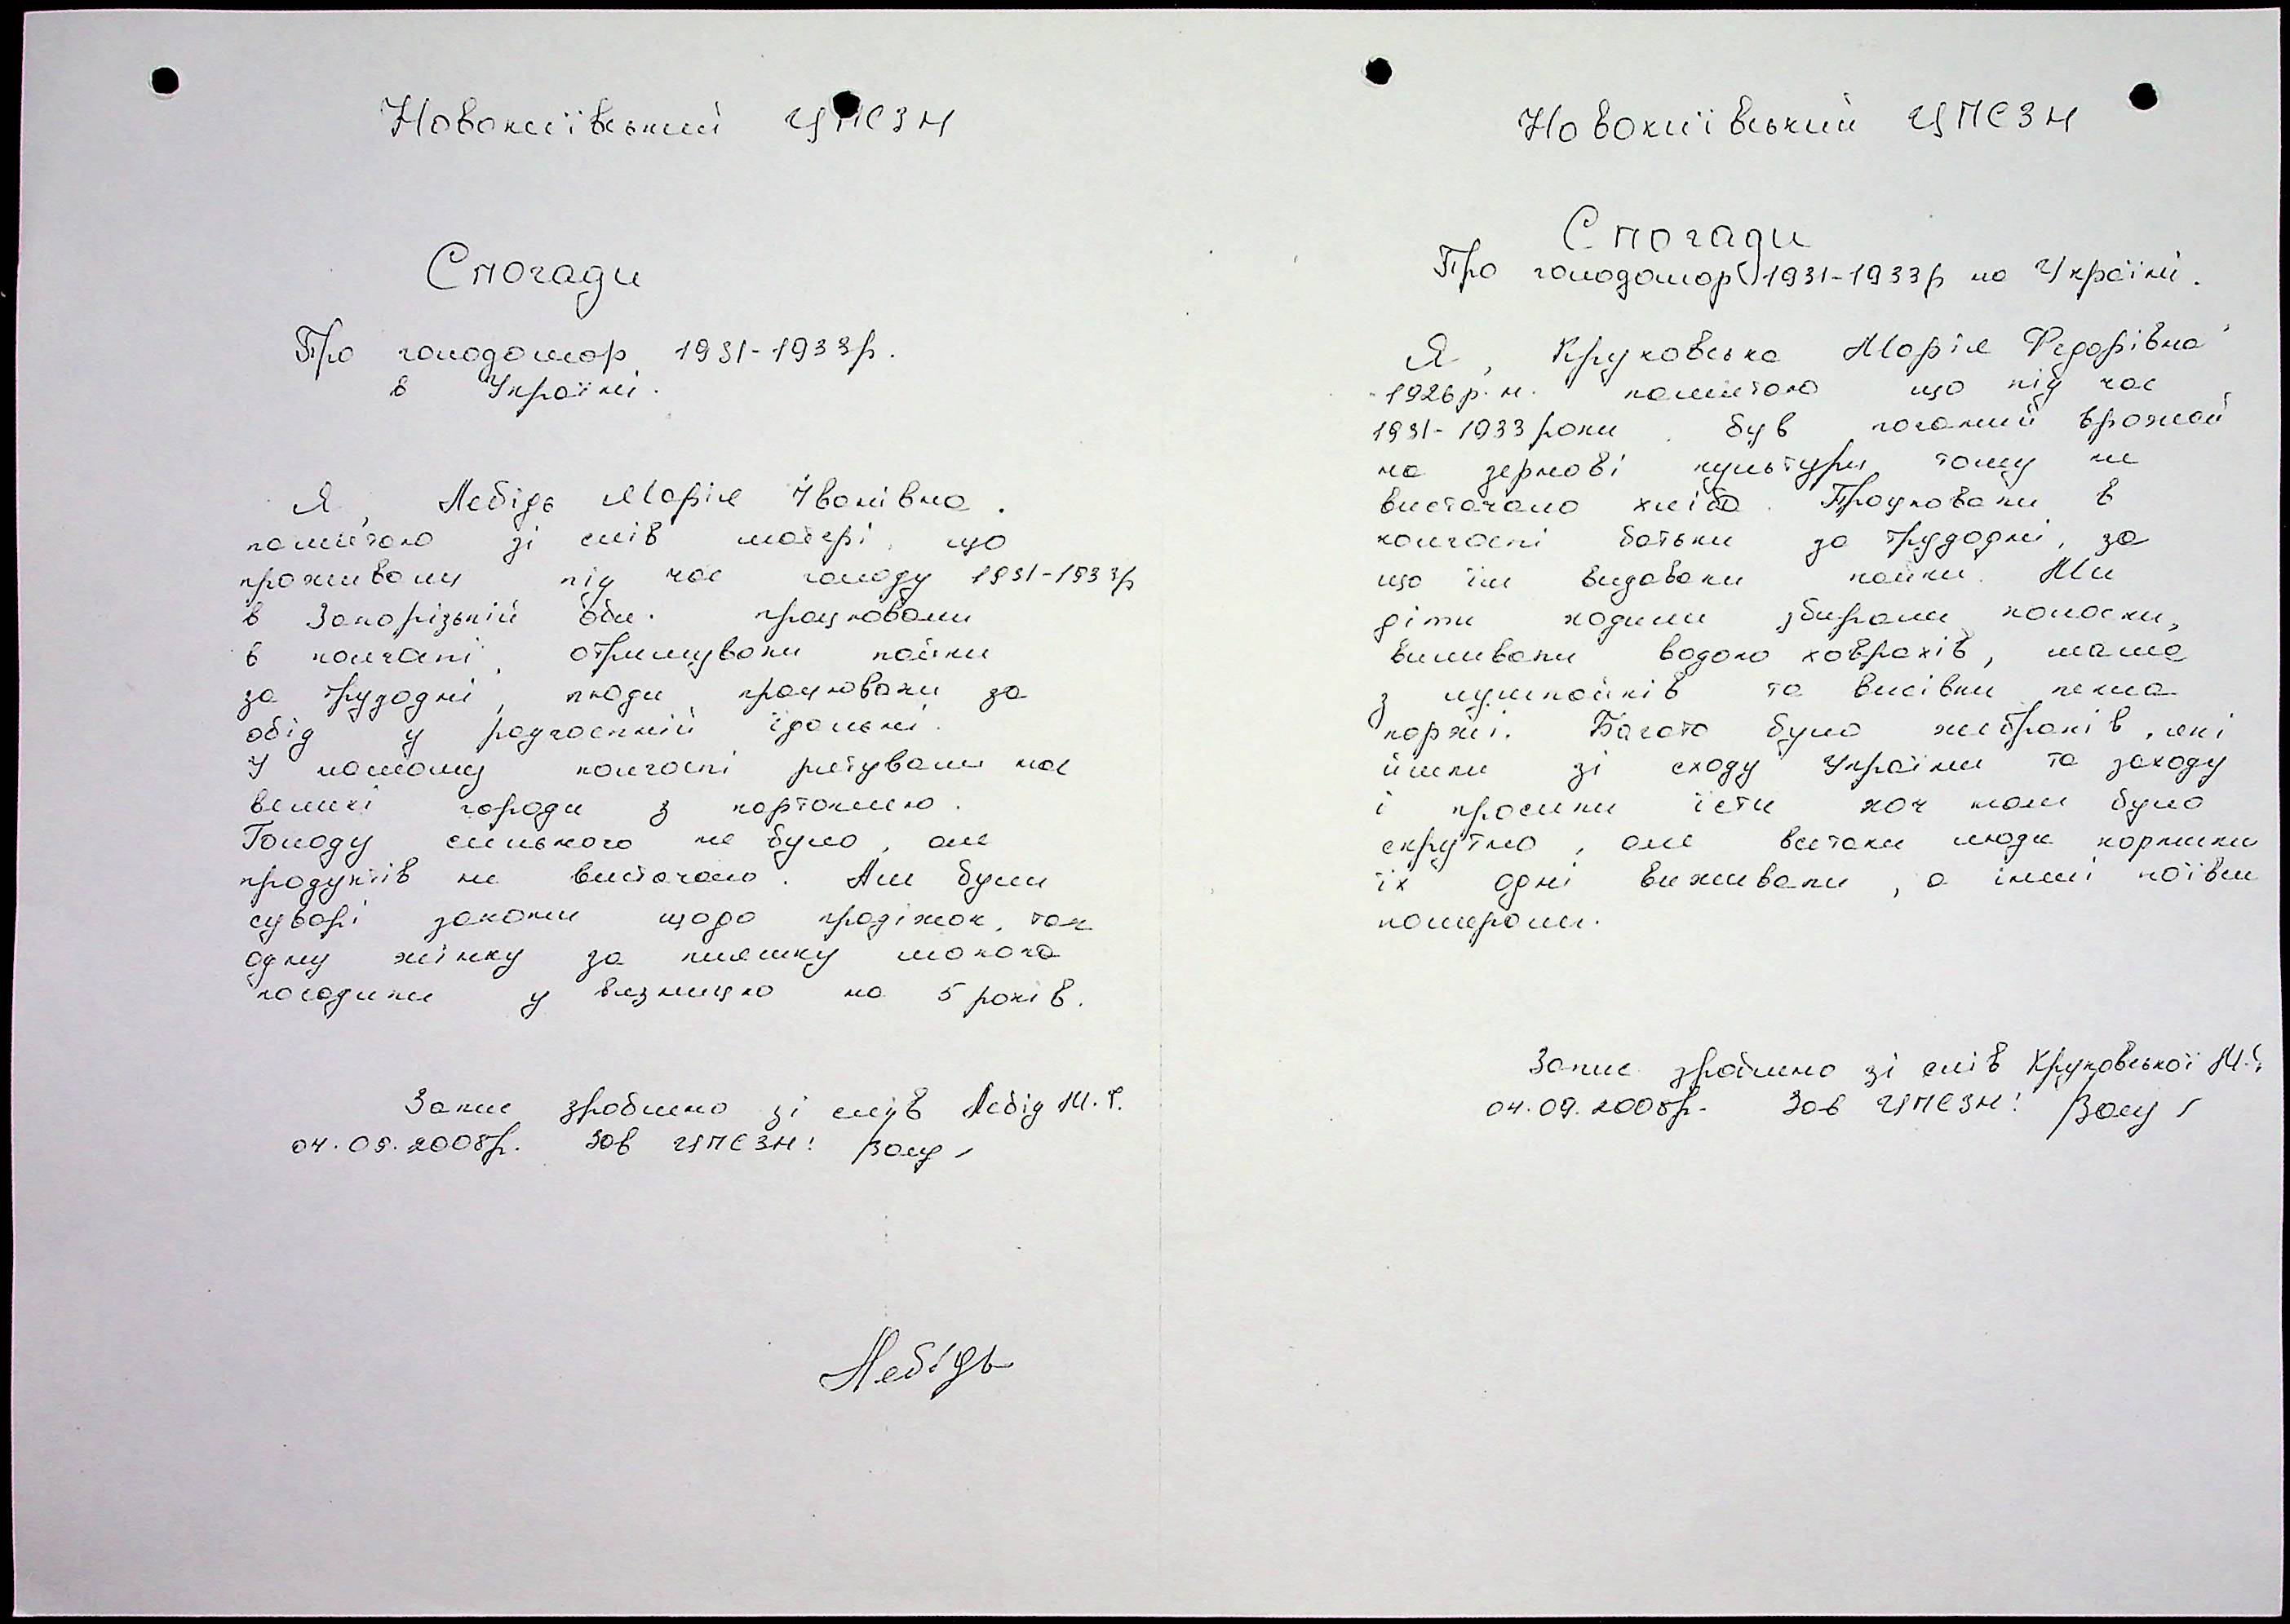 Новокиївський ЦПСЗН
Спогади
Про голодомор 1931-1933р.
в Україні.
Я, Лебідь Марія Іванівна.
памятаю зі слів матері, що
проживали під час голоду 1931-1933р
в Запорізькій обл. працювали
в колгоспі, отримували пайки
за трудодні, люди працювали за
обід у радгоспній їдальні.
У нашому колгоспі рятували нас
великі городи з картоплею.
Голоду сильного не було, але
продуктів не вистачало. Але були
суворі закони щодо крадіжок, так
одну жінку за пляшку молока
посадили у вязницю на 5 років.
Запис зроблено зі слів Лебідь М.І.
04.09.2008р. Зав ЦПСЗН:
Лебідь
Новокиївський ЦПСЗН
Спогади
Про голодомор 1931-1933р на Україні.
Я, Круковська Марія Федорівна
1926р.н. памятаю що під час
1931-1933 роки був поганий врожай
на зернові культури, тому не
вистачало хліба. Працювали в
колгоспі батьки за трудодні, за
що їм видавали пайки. Ми
діти ходили збирали колоски,
виливали водою ховрахів, мама
з та висівки пекла
коржі. Багато було жебраків, які
йшли зі сходу України та заходу
і просили їсти хоч нам було
скрутно, але встаки люди кормили
їх одні виживали, а інші поївши
помирали.
Запис зроблено зі слів Круковської М.
04.09.2008р. Зав ЦПСЗН: